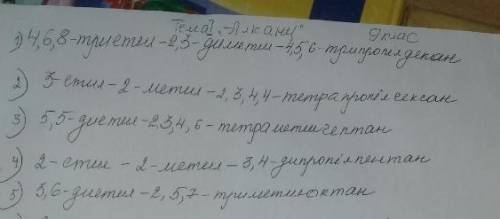 Тема1. "Алкани" 9 клас
1) 4,6,8-триетил-2,3-диметил-4,5,6-трипропілдекан
2) 3-етил-2-метил-2,3,4,4-тетрапропілгексан
3) 5,5-диетил-2,3,4,6-тетраметилгептан
4) 2-етил-2-метил-3,4-дипропілпентан
5) 3,6-диетил-2,5,7-триметилоктан